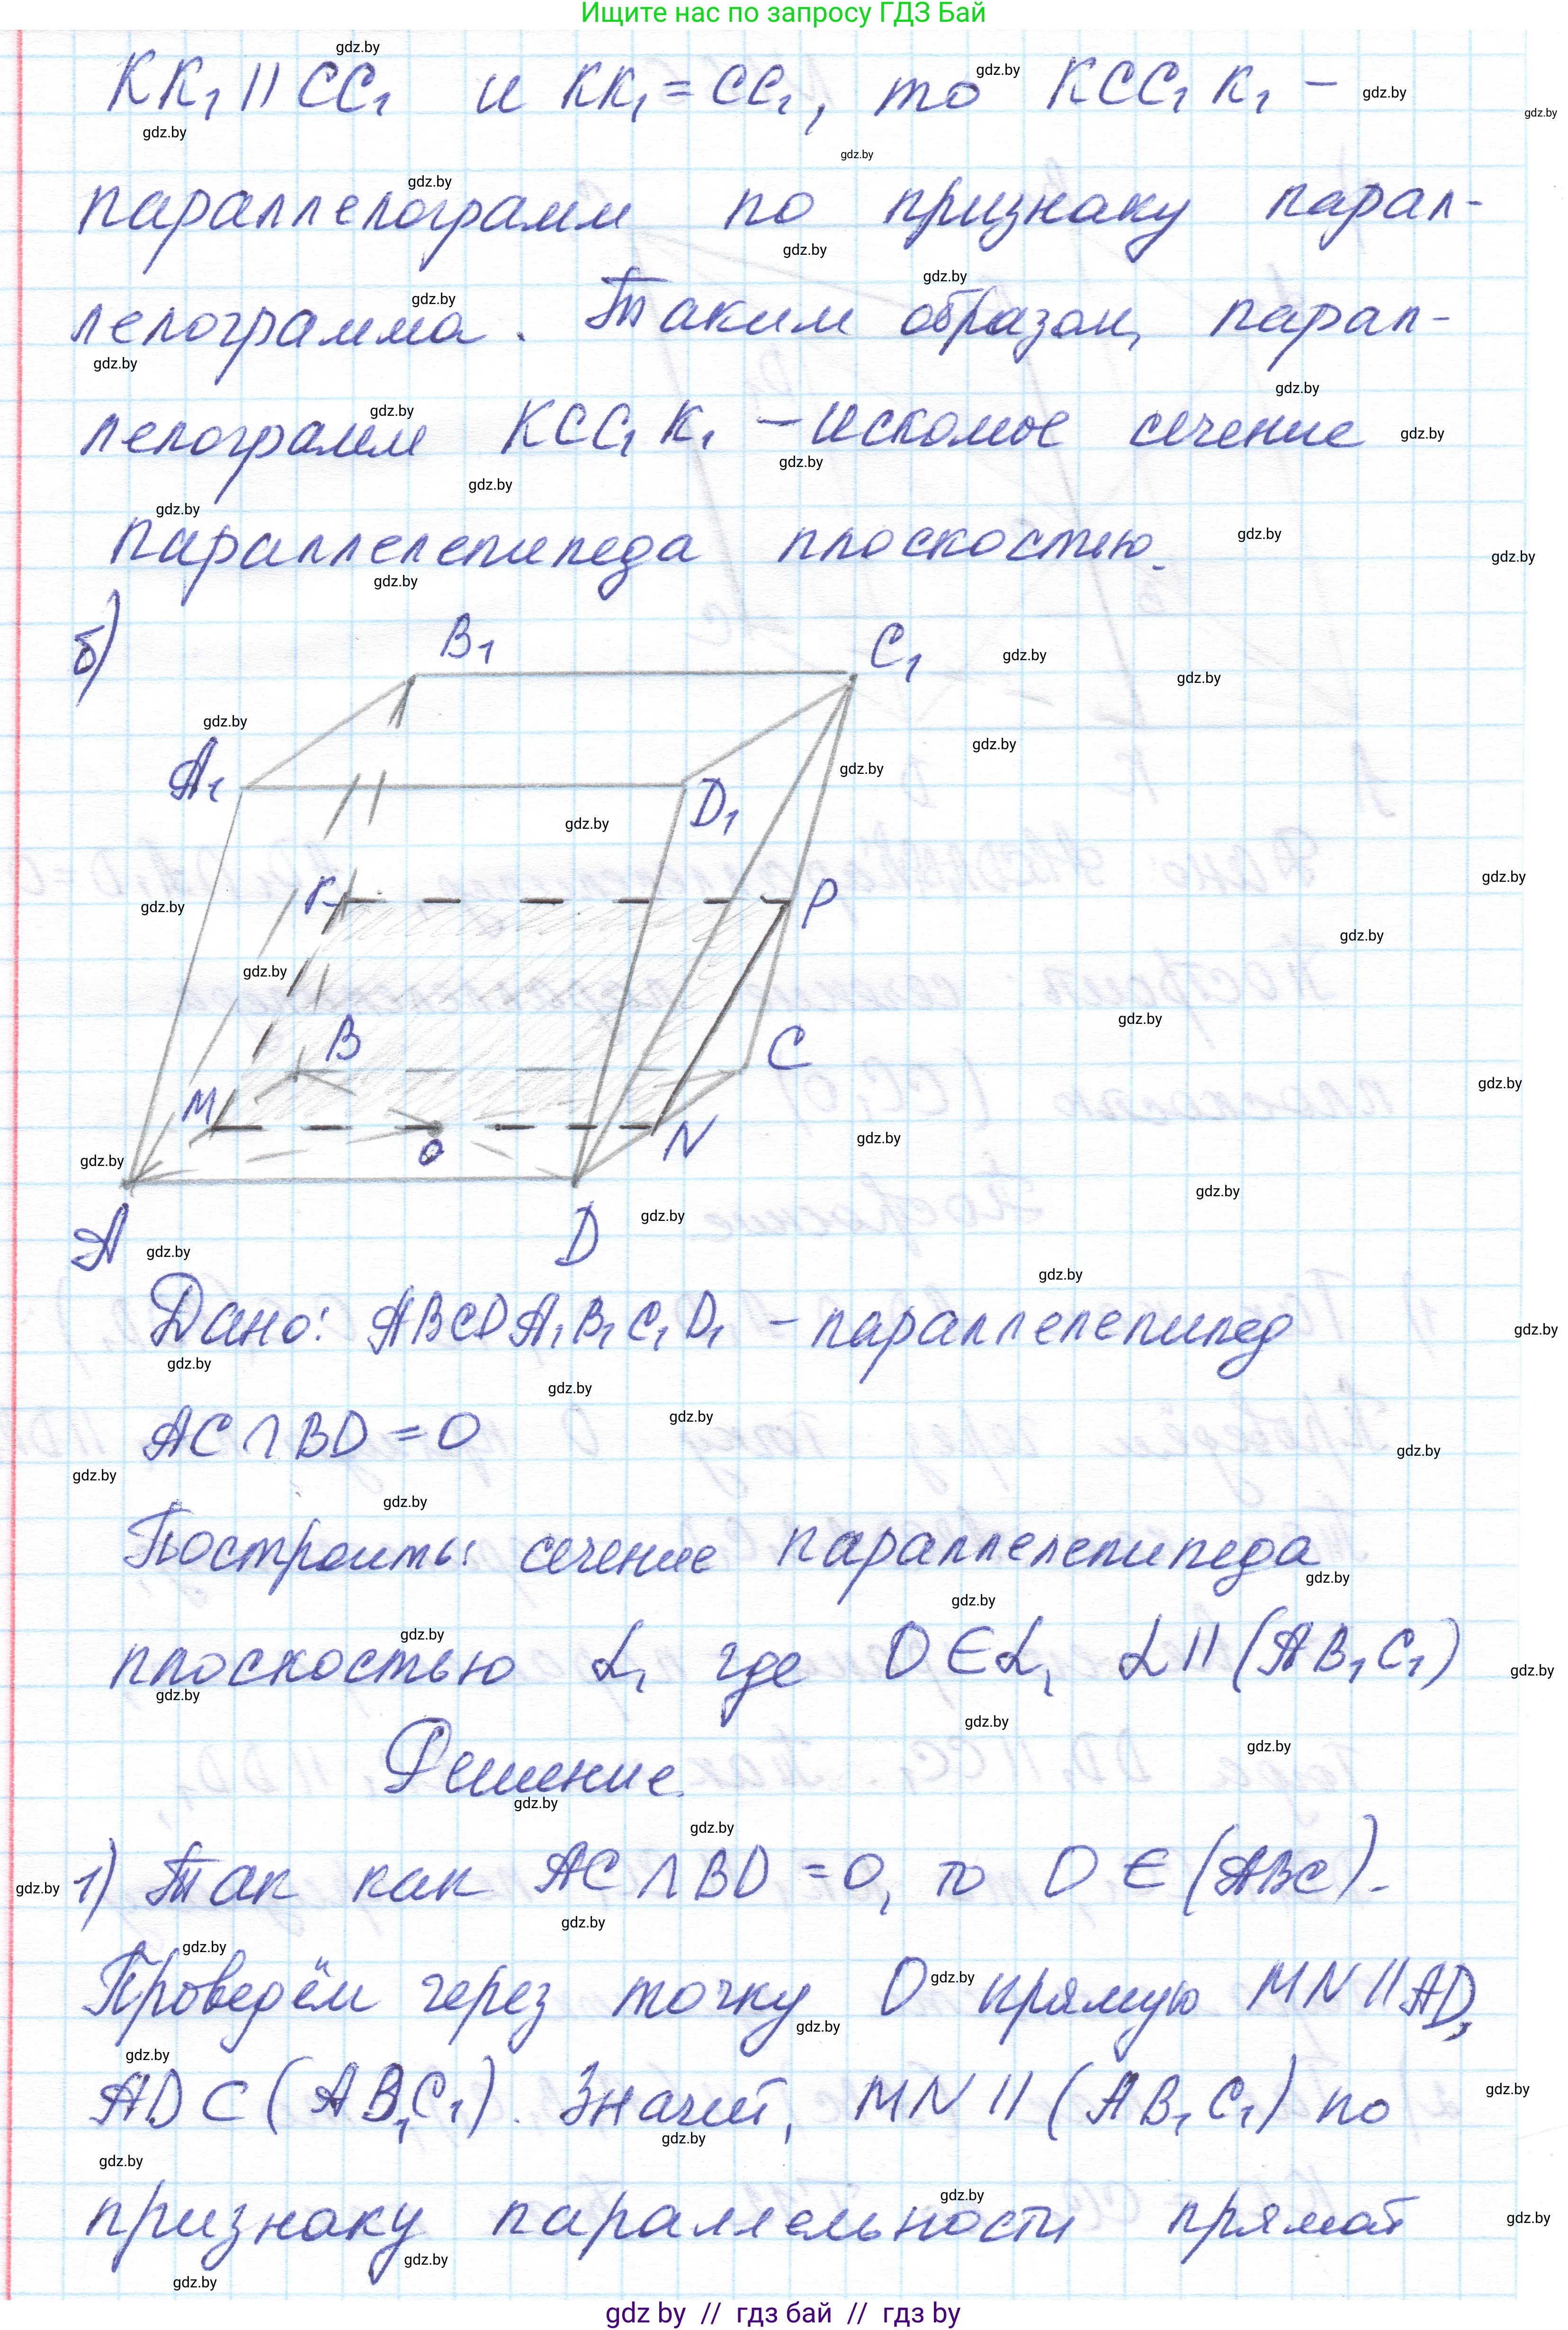 Ищите нас по запросу ГДЗ Бай
KK₁ || CC₁ и KK₁ = CC₁, то KCC₁K₁ –
параллелограмм по признаку парал-
лелограмма. Таким образом, парал-
лелограмм KCC₁K₁ – искомое сечение
параллелепипеда плоскостью.
б)
B₁ C₁
A₁ D₁
P
B C
M O N
A D
Дано: ABCDA₁B₁C₁D₁ – параллелепипед
AC ∩ BD = O
Построить: сечение параллелепипеда
плоскостью α, где O ∈ α, α || (AB₁C₁)
Решение.
1) Так как AC ∩ BD = O, то O ∈ (ABC).
Проведём через точку O прямую MN || AD,
AD ⊂ (AB₁C₁). Значит, MN || (AB₁C₁) по
признаку параллельности прямой
gdz by // гдз бай // гдз by